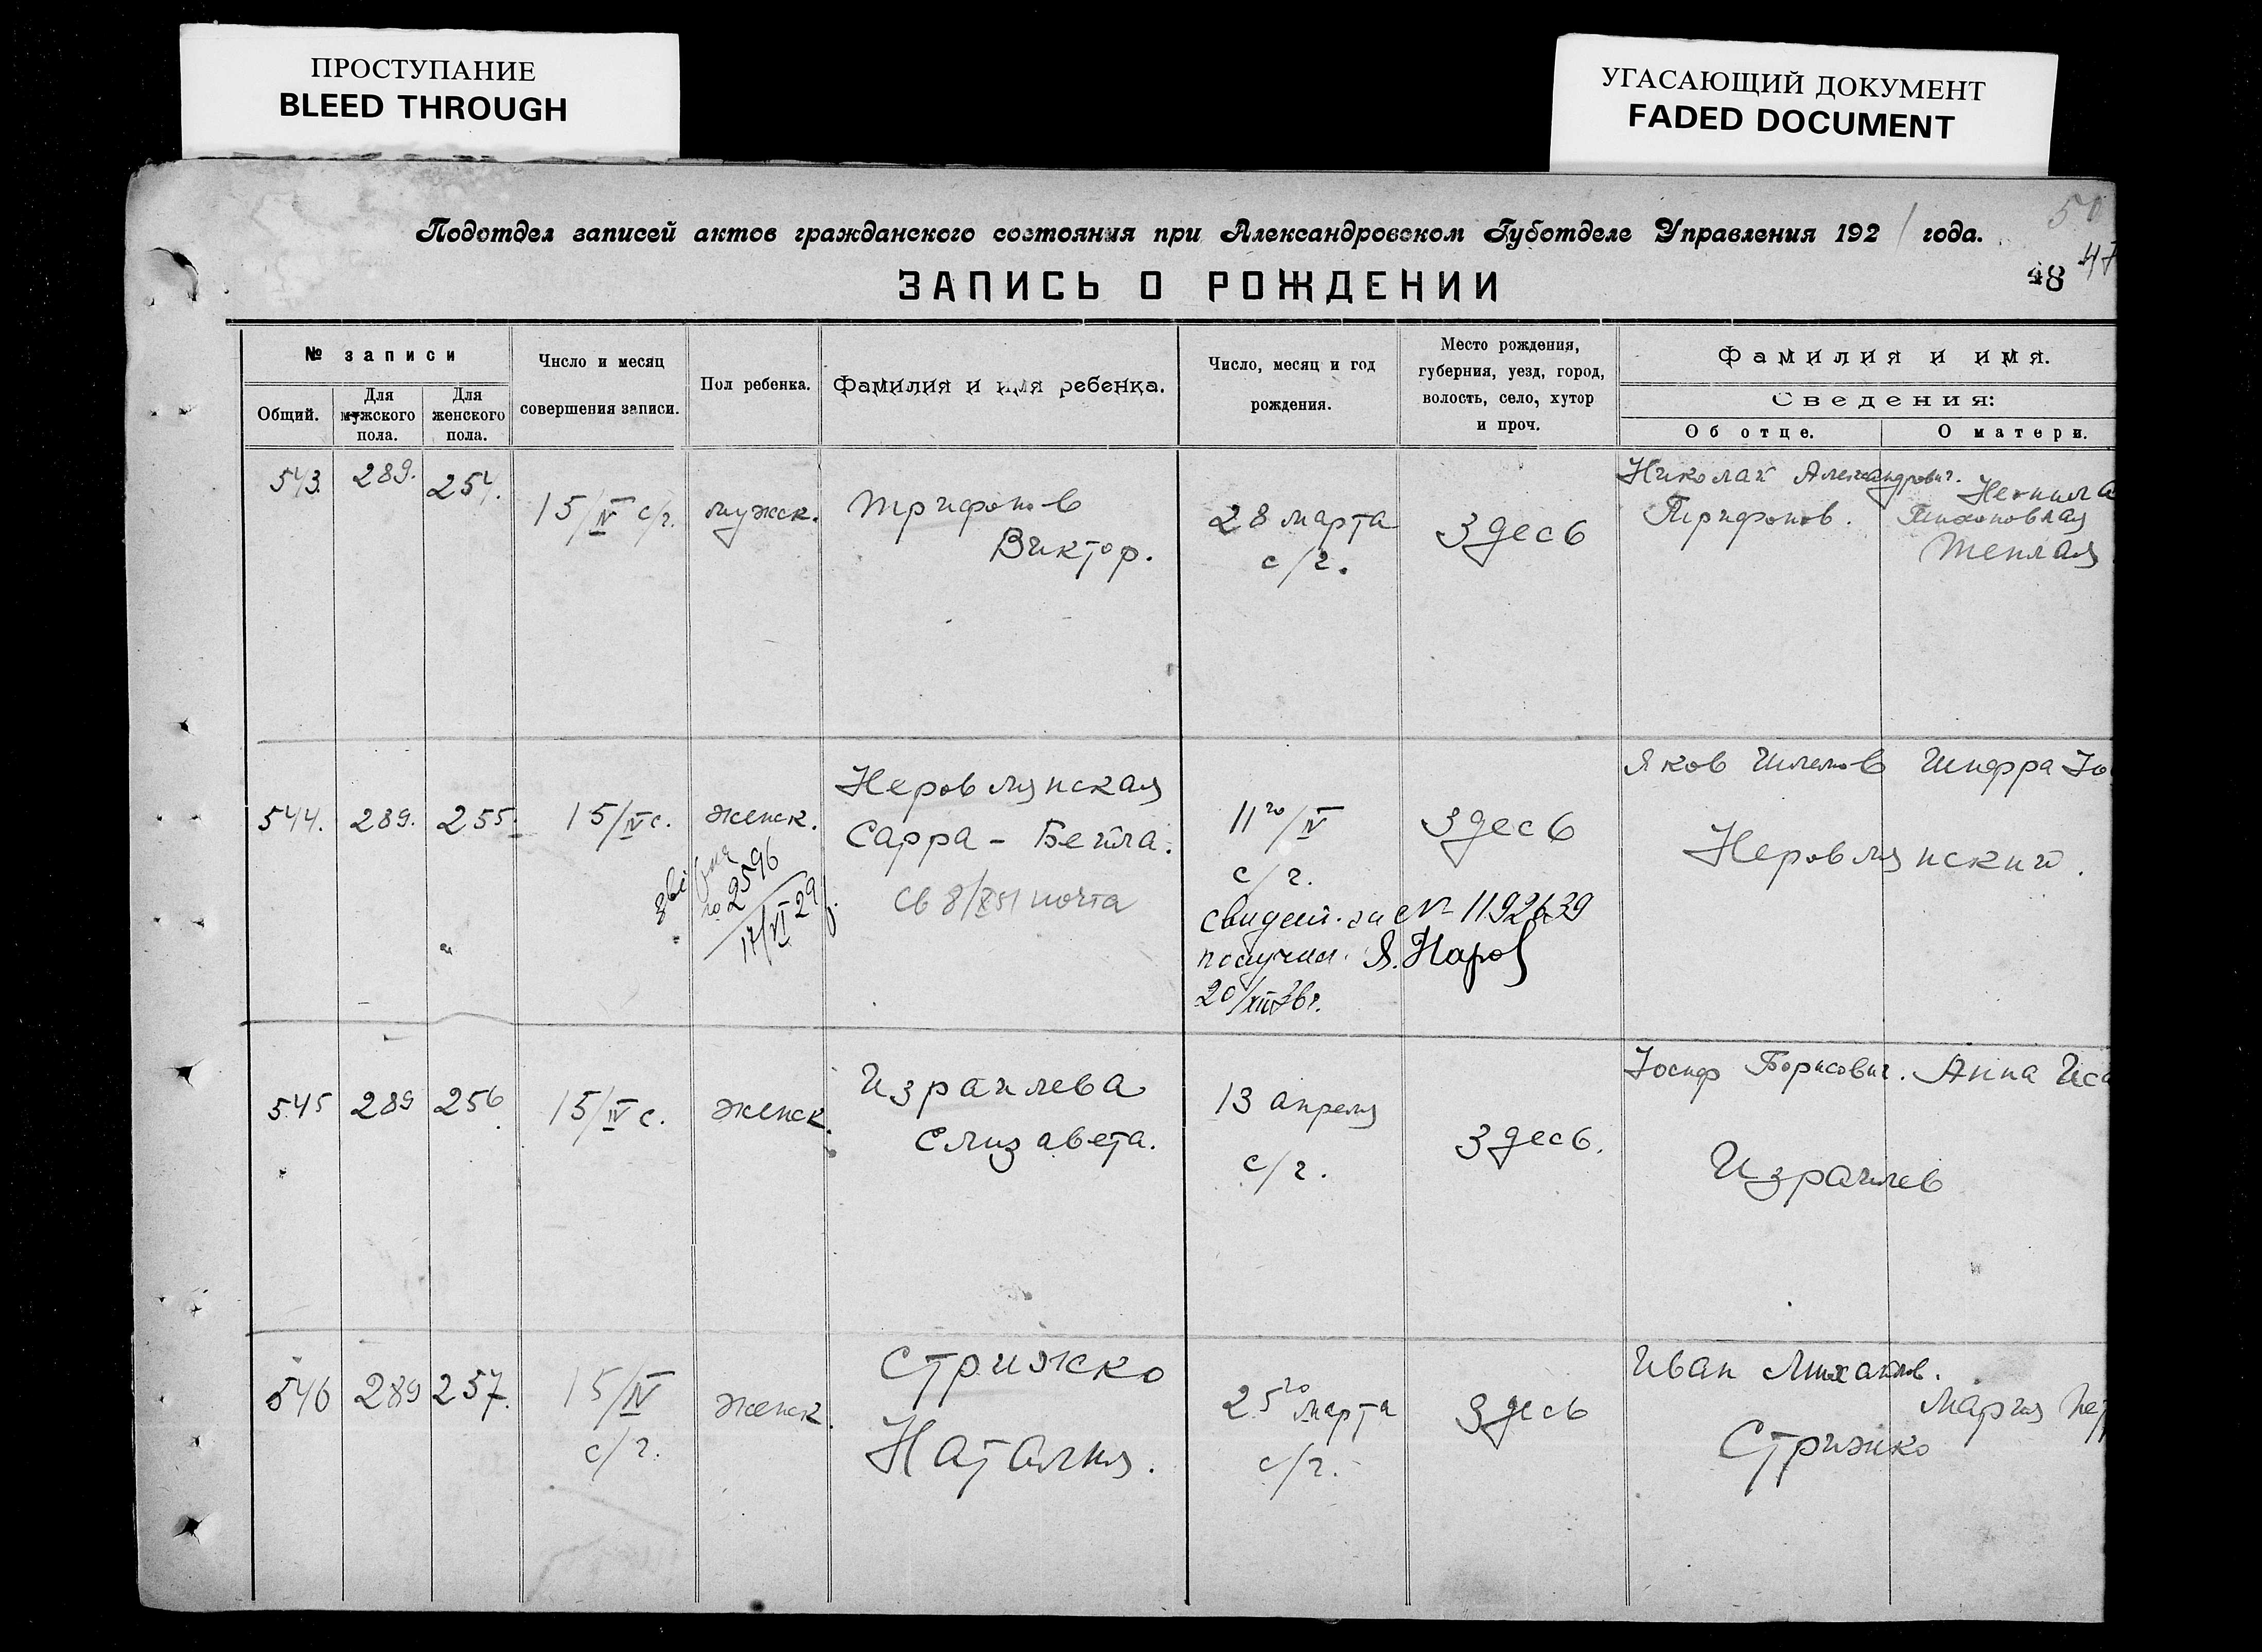 ПРОСТУПАНИЕ
BLEED THROUGH
УГАСАЮЩИЙ ДОКУМЕНТ
FADED DOCUMENT
50
Подотдел записей актов гражданского состояния при Александровском Губотделе Управления 1921 года.
48 47
ЗАПИСЬ О РОЖДЕНИИ
№ записи
Общий.
Для мужского пола.
Для женского пола.
Число и месяц совершения записи.
Пол ребенка.
Фамилия и имя ребенка.
Число, месяц и год рождения.
Место рождения, губерния, уезд, город, волость, село, хутор и проч.
Фамилия и имя.
Сведения:
Об отце.
О матери.
543. 289. 254. 15/IV с/г. мужск. Трифонов Виктор. 28 марта с/г. Здесь
Николай Александрович. Трифонов.
Тихоновная Теплая
544. 289. 255. 15/IV с. женск. Неровлянская Сарра - Бейла. 11го/IV с/г. Здесь
Яков Шлемов Шифра Іо
Неровлянский.
№ 2596
17/VI 29
св 8/XII 51 почта
свидет. за № 1192639
получил. Я. Наров
20/XII 36г.
545 289 256. 15/IV с. женск. Израилева Елизавета. 13 апреля с/г. Здесь.
Іосиф Борисович. Анна Иса
Израилев
546 289 257. 15/IV с/г. женск. Стрижко Наталия. 25го марта с/г. Здесь
Иван Михайлов.
Мария Пет
Стрижко